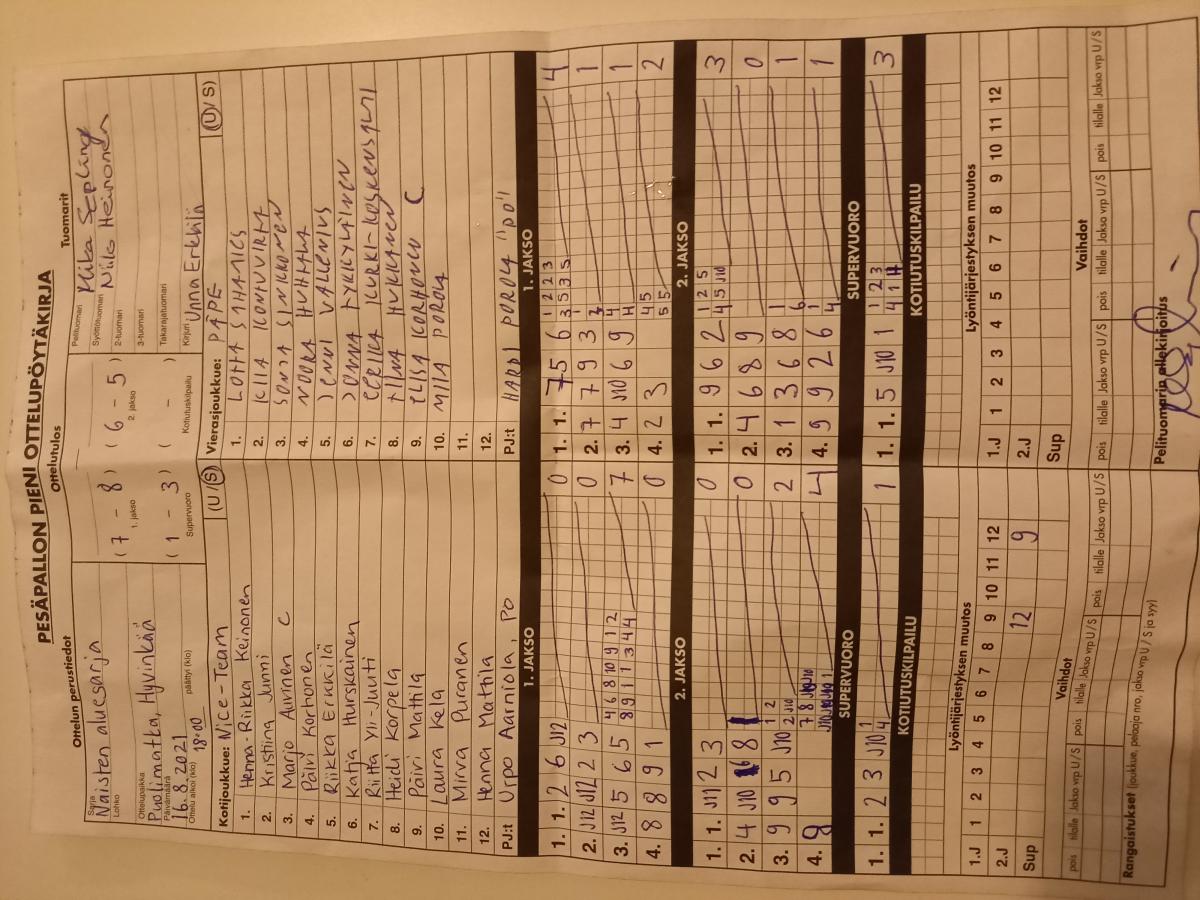 PESÄPALLON PIENI OTTELUPÖYTÄKIRJA
Ottelun perustiedot
Ottelutulos
Tuomarit
Sarja
Naisten aluesarja
Lohko
Ottelupaikka
Puolimatka, Hyvinkää
Päivämäärä
16.8.2021
Ottelu alkoi (klo)
18:00
päättyi (klo)
( 7 - 8 ) ( 6 - 5 )
1. jakso
2. jakso
( 1 - 3 ) ( - )
Supervuoro
Kotiutuskilpailu
Pelituomari
Mika Sepling
Syöttötuomari
Niilo Heinonen
2-tuomari
3-tuomari
Takarajatuomari
Kirjuri
Unna Erkkilä
Kotijoukkue: Nice-Team (U/S)
1. Henna-Riikka Keinonen
2. Kristiina Junni
3. Marjo Auvinen C
4. Päivi Karhonen
5. Riikka Erkkilä
6. Katja Hurskainen
7. Riitta Yli-Juuti
8. Heidi Korpela
9. Päivi Mattila
10. Laura Kela
11. Mirva Puranen
12. Henna Mattila
PJ:t Urpo Aarniola, PO
Vierasjoukkue: PÄPE (U/S)
1. LOTTA SAHAMIES
2. KIIA
3. SONJA SINKKONEN
4. NOORA HUHTALA
5. JENNI VALLENIUS
6. JONNA TYKKYLÄINEN
7. EERIKA KURKI-
8. TIINA
9. ELISA KORHONEN C
10. MIIA POROLA
11.
12.
PJ:t HARRI POROLA "PO"
1. JAKSO
1. 1. 2 6 J12 0
2. J12 J12 2 3 0
3. J12 5 6 5 7
4 6 8 10 9 12
8 9 1 1 3 4 4
4. 8 8 9 1 0
2. JAKSO
1. 1. J11 2 3 0
2. 4 J10 8 0
3. 9 9 5 J10 2
1 2
2 J10
4. 9 4
SUPERVUORO
1. 1. 2 3 J10 1
1
4
KOTIUTUSKILPAILU
1. JAKSO
1. 1. 7 5 6 4
1 2 2 3
3 5 3 5
2. 7 7 9 3 1
3. 4 J10 6 9 1
4. 2 3 2
4 5
5 5
2. JAKSO
1. 1. 9 6 2 3
1 2 5
4 5 J10
2. 4 6 8 9 0
3. 1 3 6 8 1
4. 9 9 2 6 1
1
4
SUPERVUORO
1. 1. 5 J10 1 3
1 2 3
4 1 4
KOTIUTUSKILPAILU
Lyöntijärjestyksen muutos
1.J 1 2 3 4 5 6 7 8 9 10 11 12
2.J 12 9
Sup
Vaihdot
pois tilalle Jakso vrp U/S pois tilalle Jakso vrp U/S pois tilalle Jakso vrp U/S
Lyöntijärjestyksen muutos
1.J 1 2 3 4 5 6 7 8 9 10 11 12
2.J
Sup
Vaihdot
pois tilalle Jakso vrp U/S pois tilalle Jakso vrp U/S pois tilalle Jakso vrp U/S
Rangaistukset (joukkue, pelaaja nro, jakso vrp U/S ja syy)
Pelituomarin allekirjoitus